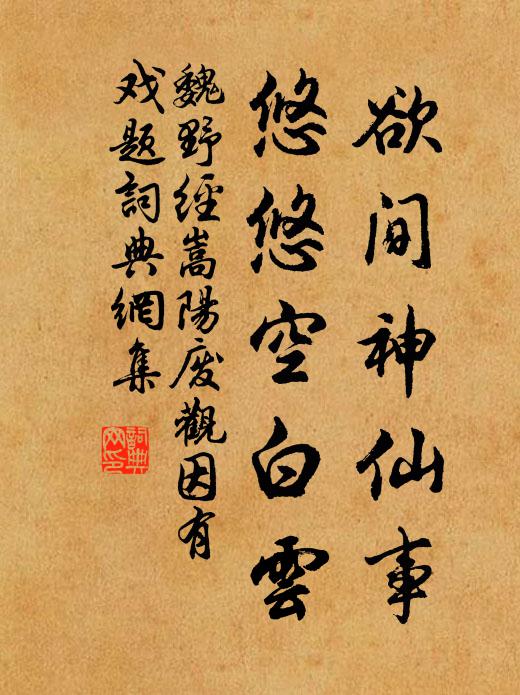 欲间神仙事
悠悠空白雲
魏野經嵩陽废觀因有
戏题詞典網集
詞典
网印